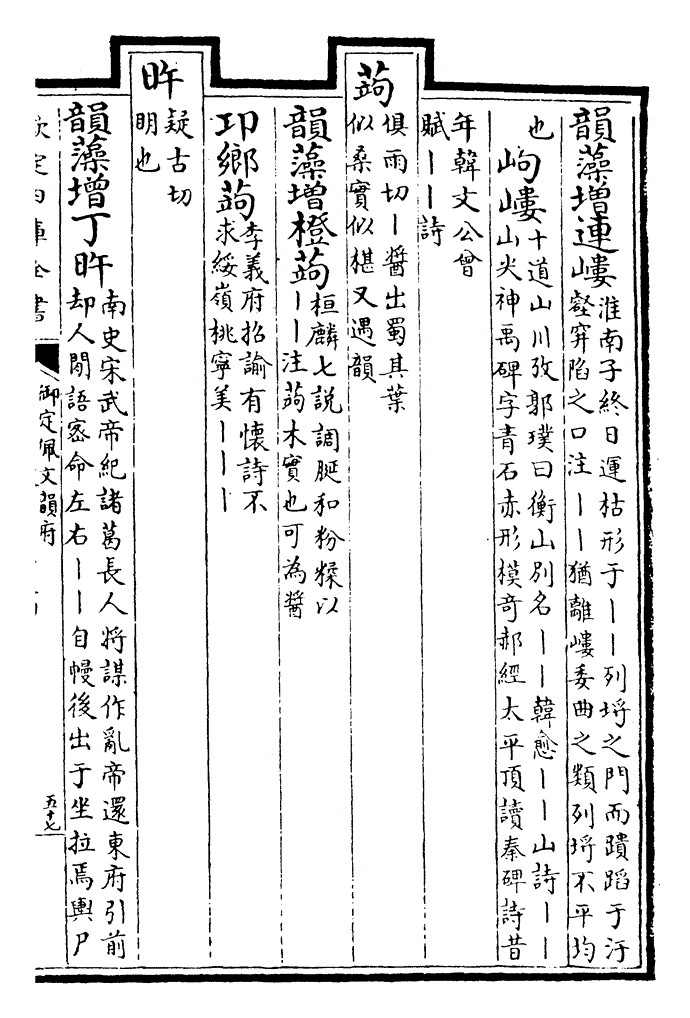 韻藻增連嶁淮南子終日運枯形于〡〡列埒之門而蹪蹈于汙
壑穽陷之口注〡〡猶離嶁委曲之類列埒不平均
也
岣嶁十道山川攷郭璞曰衡山別名〡〡韓愈〡〡山詩〡〡
山尖神禹碑字青石赤形模奇郝經太平頂讀秦碑詩昔
年韓文公曾
賦〡〡詩
蒟俱雨切〡醬出蜀其葉
似桑實似椹又遇韻
韻藻增橙蒟桓麟七說調脠和粉糅以
〡〡注蒟木實也可為醬
卭鄉蒟李義府招諭有懷詩不
求綏嶺桃寧美〡〡〡
旿疑古切
明也
韻藻增丁旿南史宋武帝紀諸葛長人將謀作亂帝還東府引前
却人閒語密命左右〡〡自幔後出于坐拉焉輿尸
欽定四庫全書
御定佩文韻府
五十七